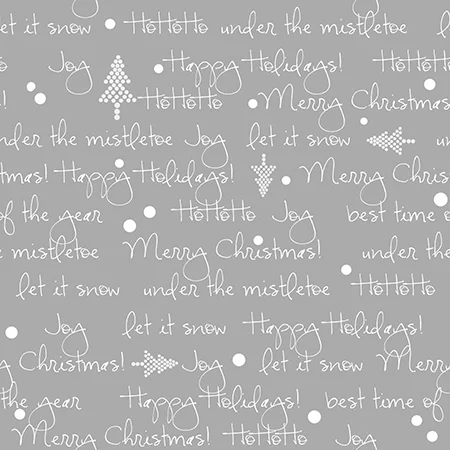 let it snow HoHoHo under the mistletoe
Joy Happy Holidays! HoHoHo
HoHoHo Merry Christmas
under the mistletoe Joy let it snow
Christmas! Happy Holidays! Merry Chris
of the year HoHoHo Joy best time o
mistletoe Merry Christmas! under the
let it snow under the mistletoe HoHoHo
Joy let it snow Happy Holidays!
Christmas! Joy let it snow Merry
the year Happy Holidays! best time of
Merry Christmas! HoHoHo Joy